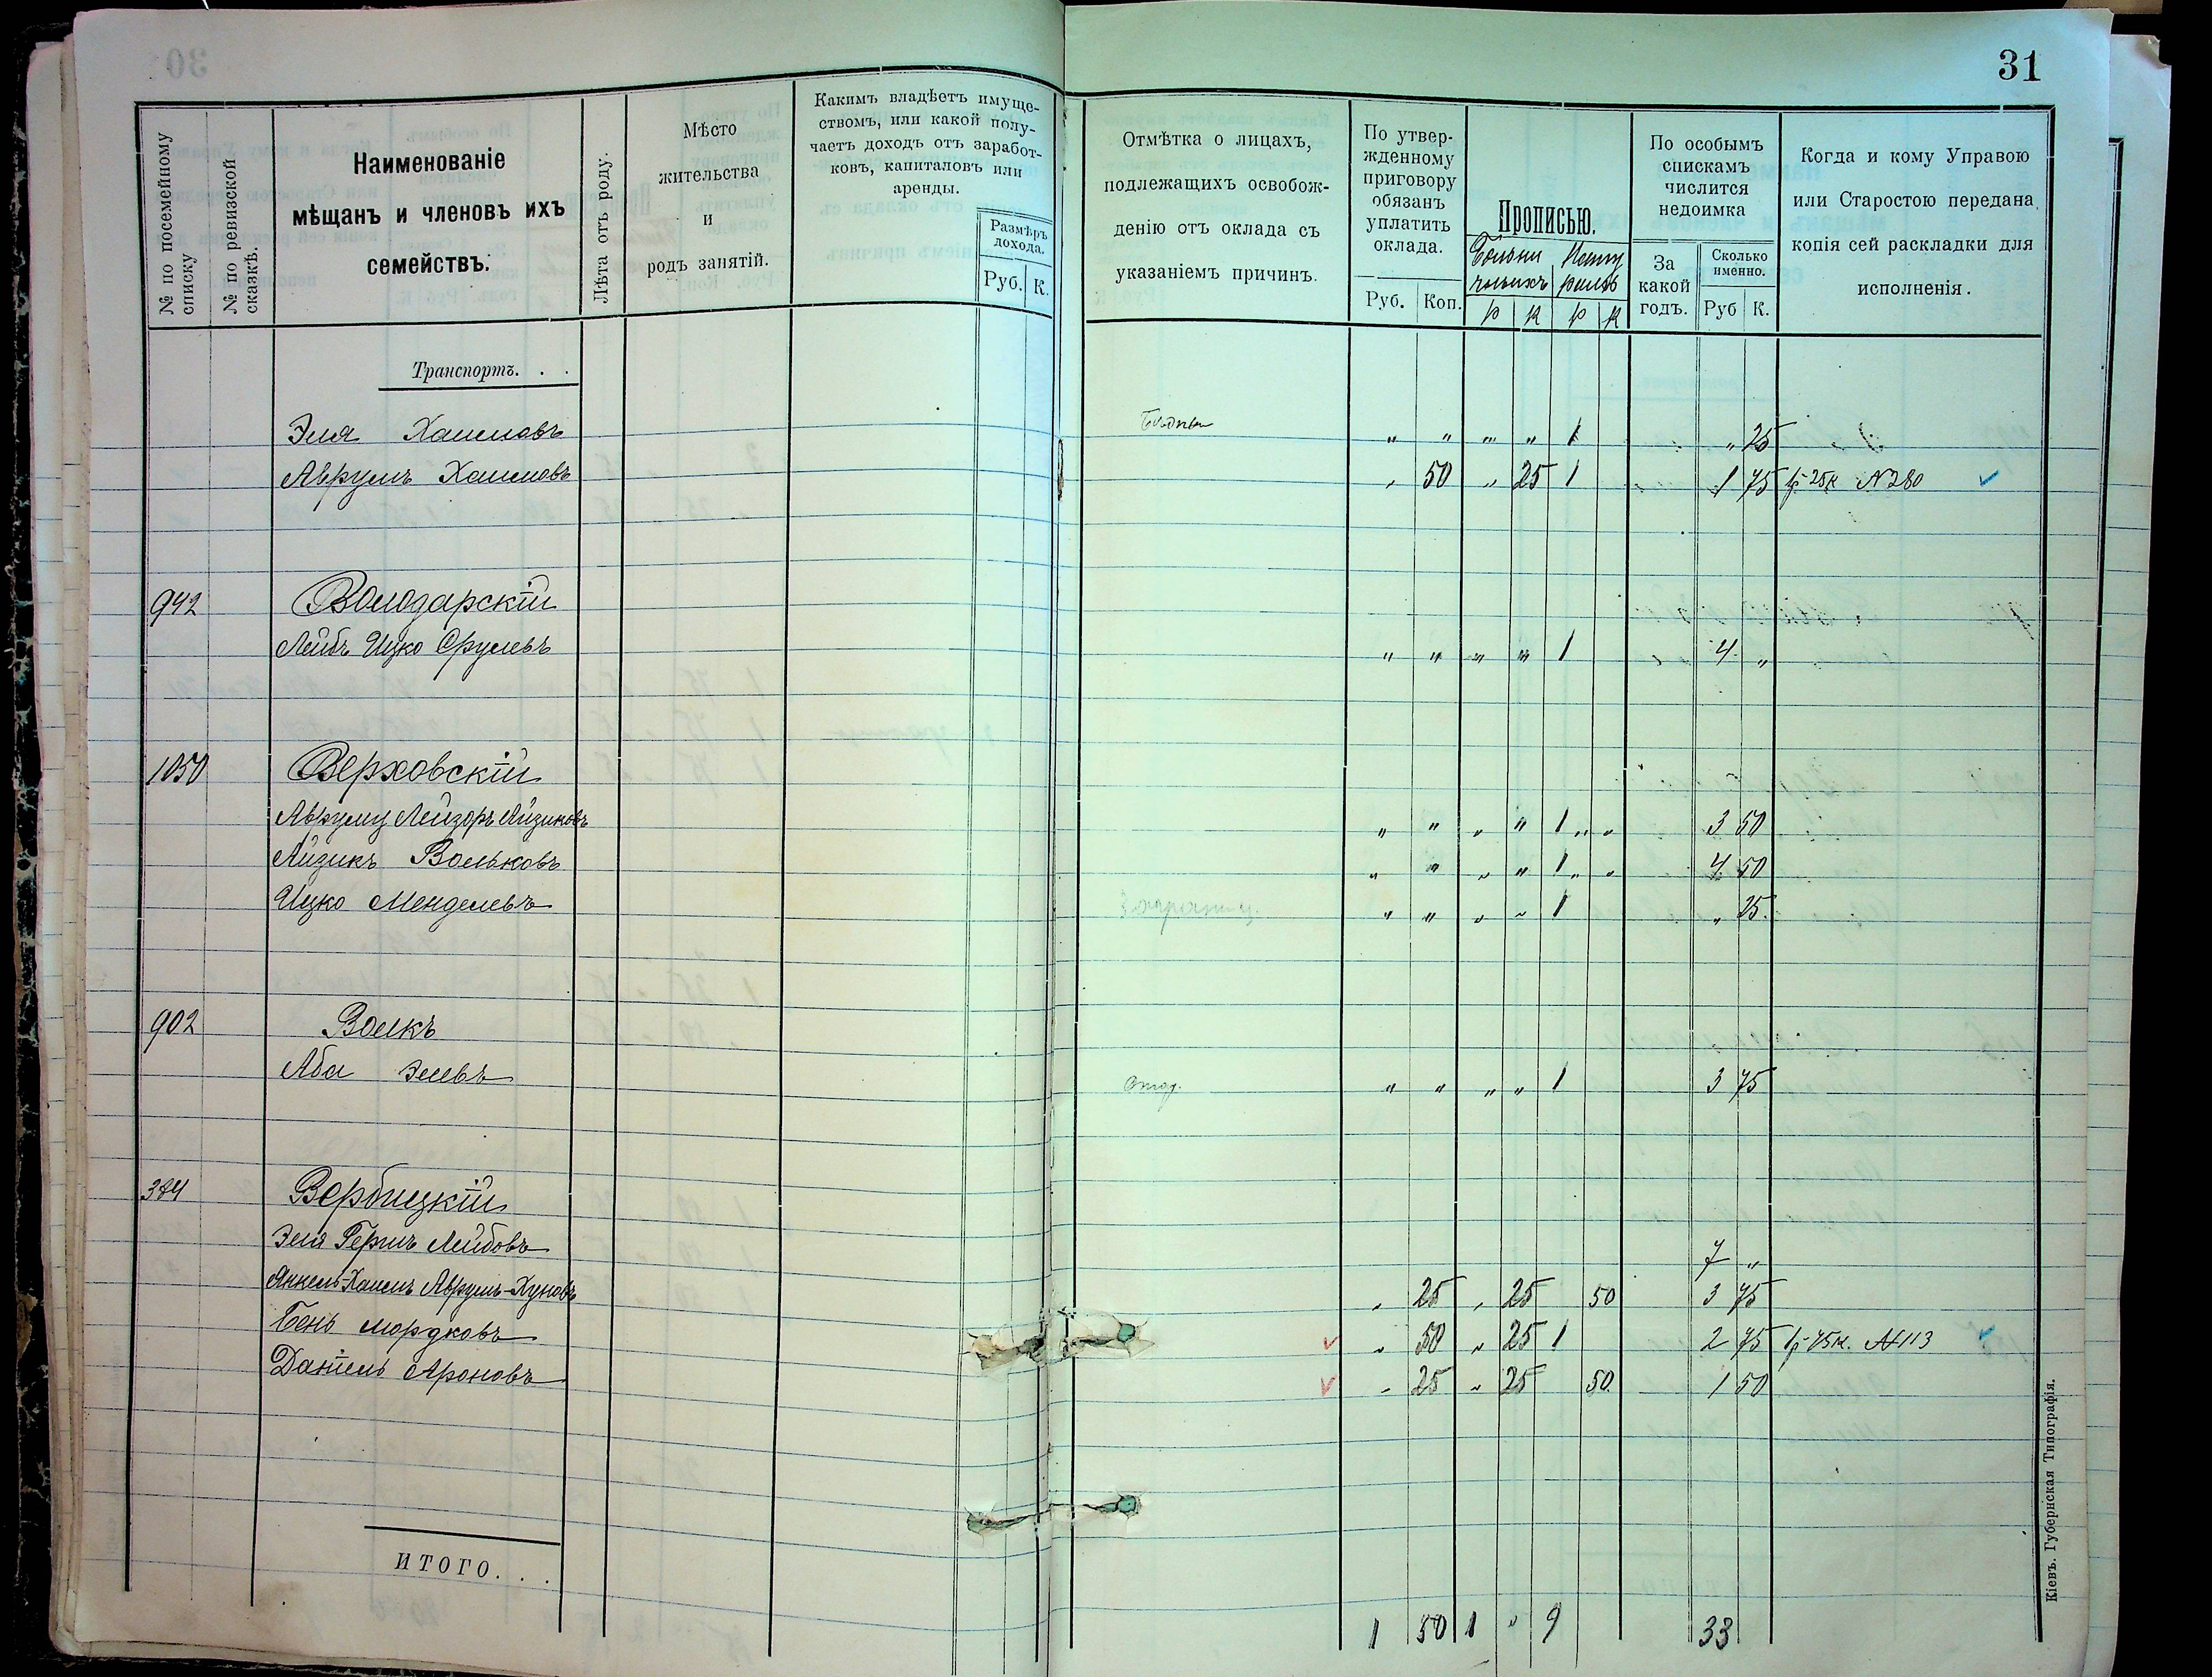 31
№ по посемейному списку
№ по ревизской сказкѣ.
Наименованіе
мѣщанъ и членовъ ихъ
семействъ.
Лѣта отъ роду.
Мѣсто
жительства
и
родъ занятій.
Какимъ владѣетъ имуще-
ствомъ, или какой полу-
чаетъ доходъ отъ заработ-
ковъ, капиталовъ или
аренды.
Размѣръ
дохода.
Руб. К.
Отмѣтка о лицахъ,
подлежащихъ освобож-
денію отъ оклада съ
указаніемъ причинъ.
По утвер-
жденному
приговору
обязанъ
уплатить
оклада.
Руб. Коп.
Прописью.
р к р к
По особымъ
спискамъ
числится
недоимка
За
какой
годъ.
Сколько
именно.
Руб К.
Когда и кому Управою
или Старостою передана
копія сей раскладки для
исполненія.
Транспортъ. . .
Эля Хаимовъ " " " " 1 " 25
Аврумъ Хаимовъ " 50 " 25 1 1 75 1р 25к N280
942 Володарскій
Лейбъ Ицко Срулевъ " " " " 1 4 "
1050 Верховскій
Аврумъ Лейзоръ Айзиковъ " " " " 1 " " 3 50
Айзикъ Вольковъ " " " " 1 " " 4 50
Ицко Менделевъ " " " " 1 " 25
902 Волкъ
Аба Элевъ " " " " 1 3 75
384 Вербицкій
Эля Гершъ Лейбовъ 7 "
Янкель-Хаимъ Аврумъ-Хуновъ " 25 " 25 50 3 75
Бень Мордковъ " 50 " 25 1 2 75 1р 75к. N113
Даніель Ароновъ " 25 " 25 50 1 50
ИТОГО. . .
1 50 1 " 9 33
Кіевъ. Губернская Типографія.